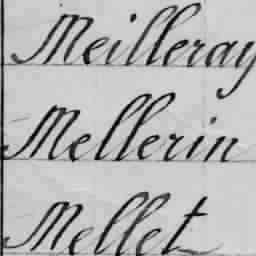 Meilleray
Mellerin
Mellet